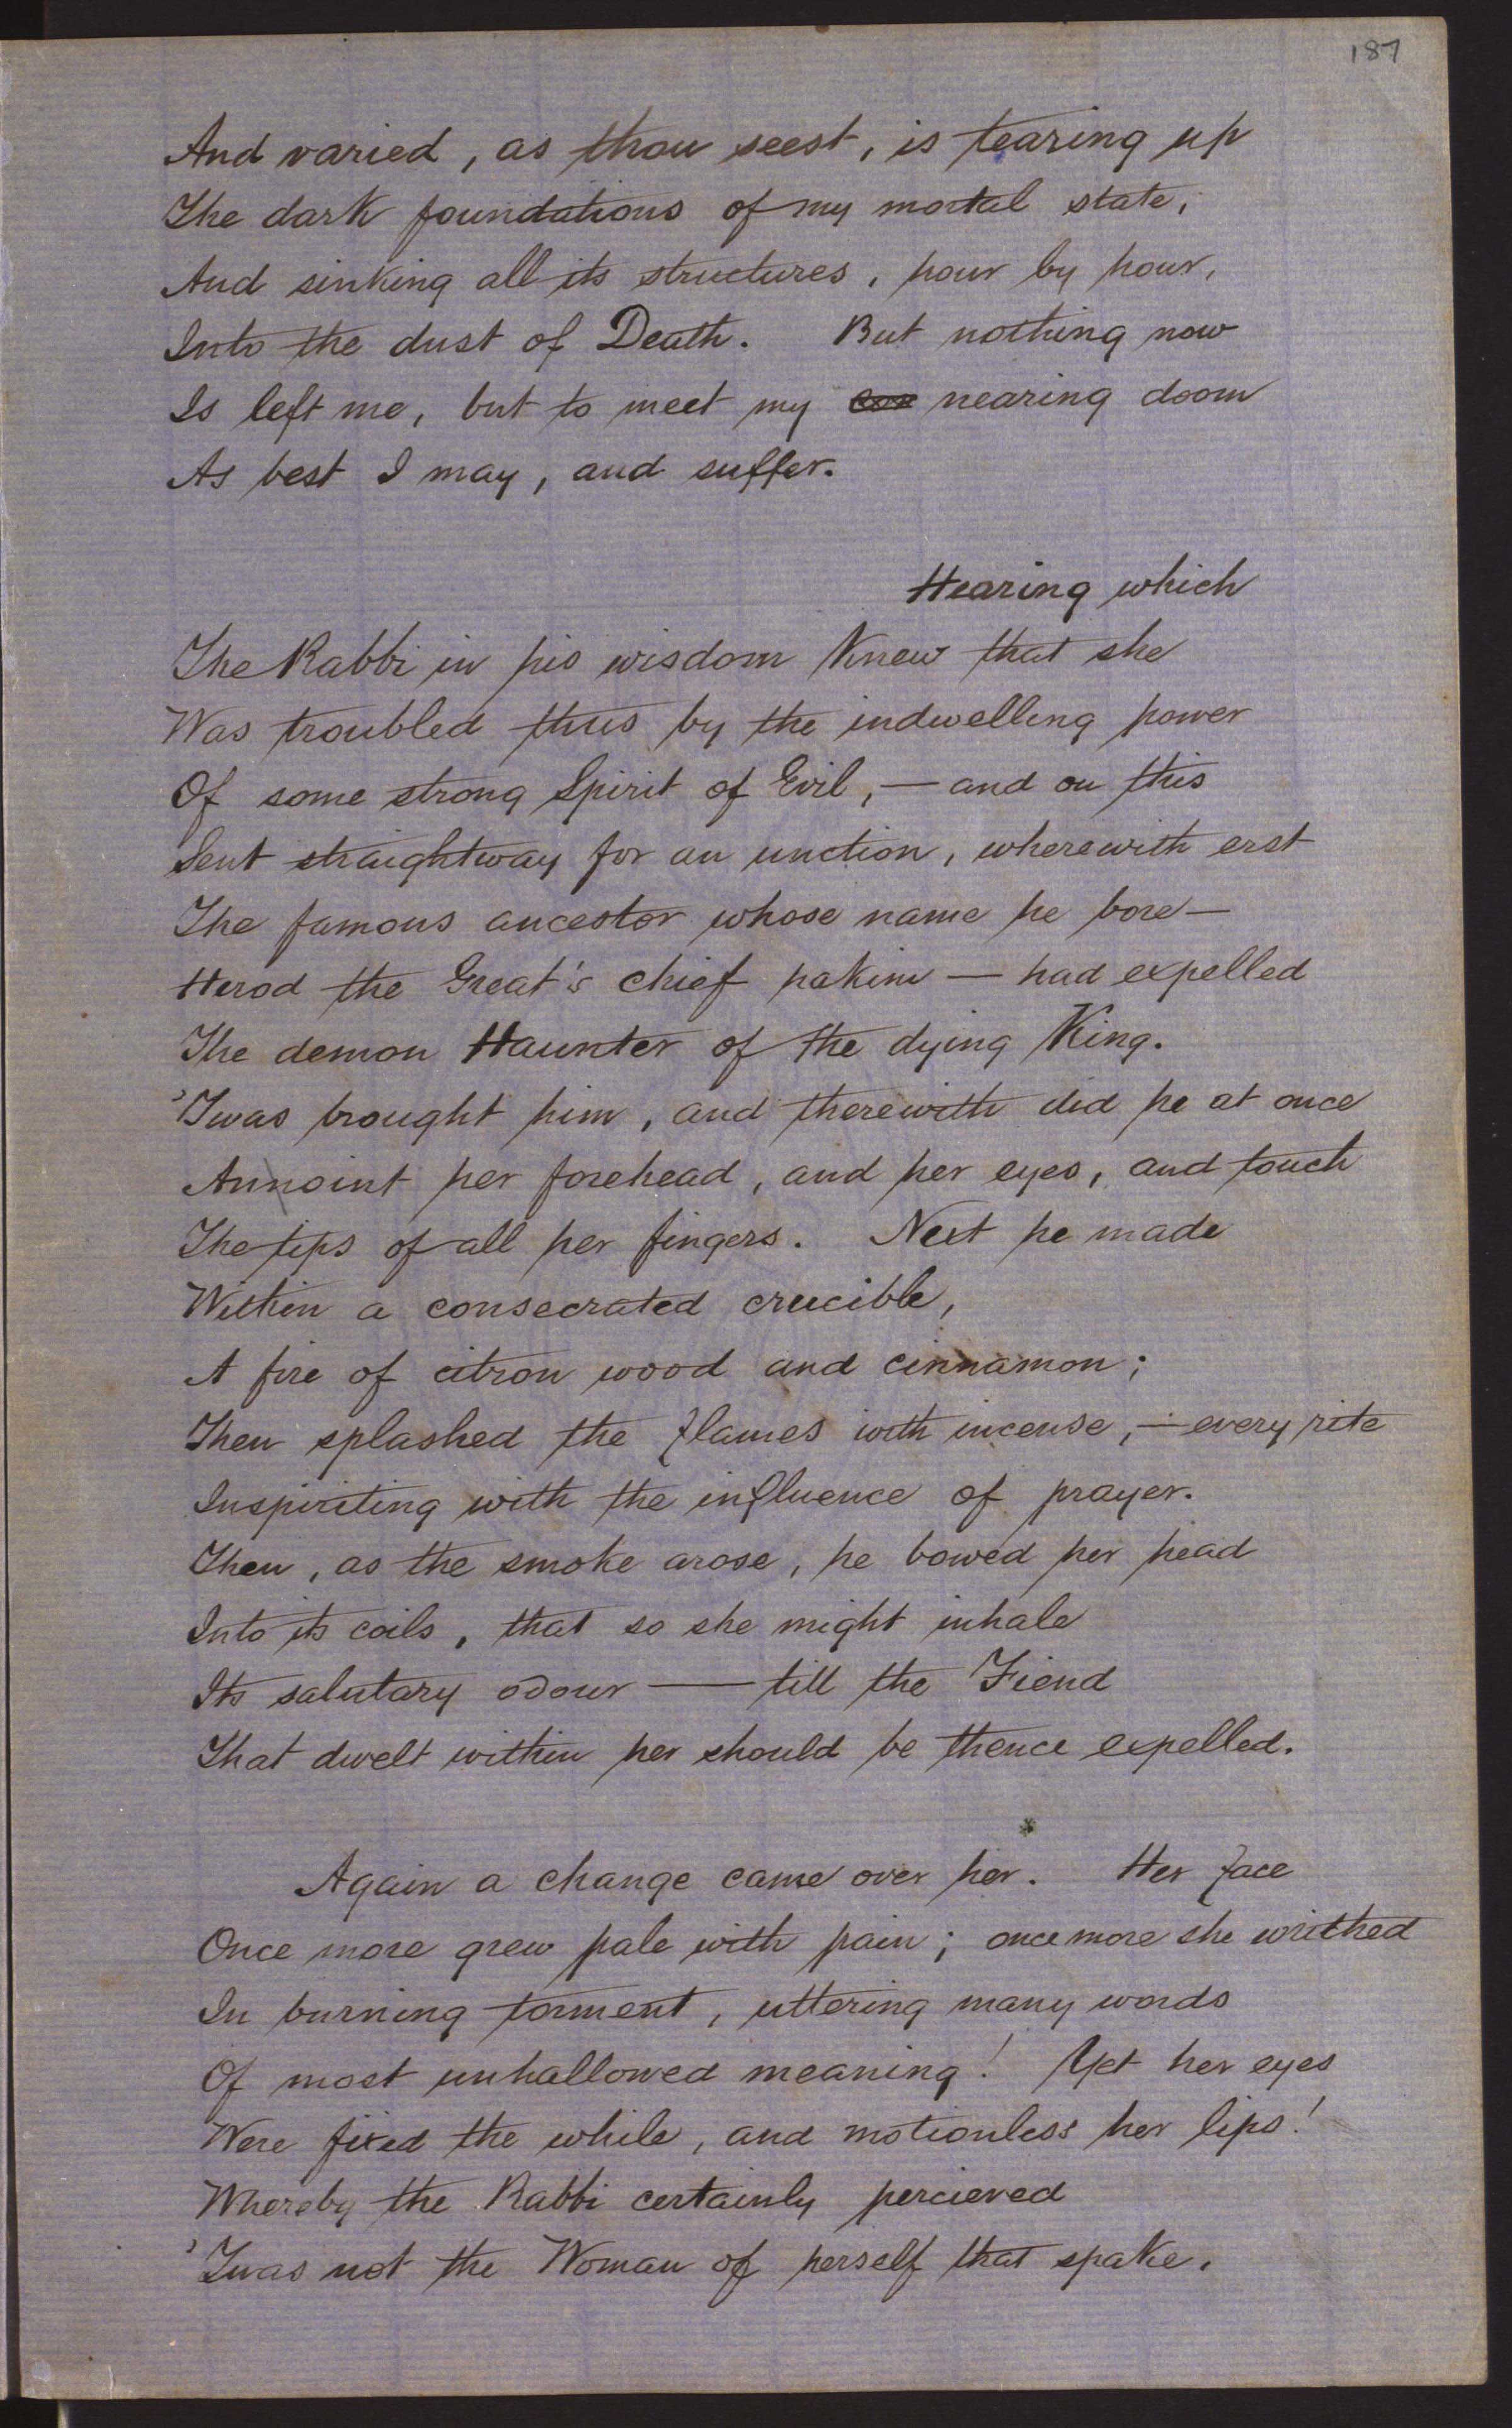 187
And varied, as thou seest, is tearing up
The dark foundations of my mortal state,
And sinking all its structures, hour by hour,
Into the dust of Death. But nothing now
Is left me, but to meet my nearing doom
As best I may, and suffer.
Hearing which
The Rabbi in his wisdom knew that she
Was troubled thus by the indwelling power
Of some strong Spirit of Evil,— and on this
Sent straightway for an unction, wherewith erst
The famous ancestor whose name he bore—
Herod the Great's chief hakim — had expelled
The demon Haunter of the dying King.
'Twas brought him, and therewith did he at once
Annoint her forehead, and her eyes, and touch
The tips of all her fingers. Next he made
Within a consecrated crucible,
A fire of citron wood and cinnamon;
Then splashed the flames with incense,— every rite
Inspiriting with the influence of prayer.
Then, as the smoke arose, he bowed her head
Into its coils, that so she might inhale
Its salutary odour — till the Fiend
That dwelt within her should be thence expelled.
Again a change came over her. Her face
Once more grew pale with pain; once more she writhed
In burning torment, uttering many words
Of most unhallowed meaning! Yet her eyes
Were fixed the while, and motionless her lips!
Whereby the Rabbi certainly percieved
'Twas not the Woman of herself that spake,